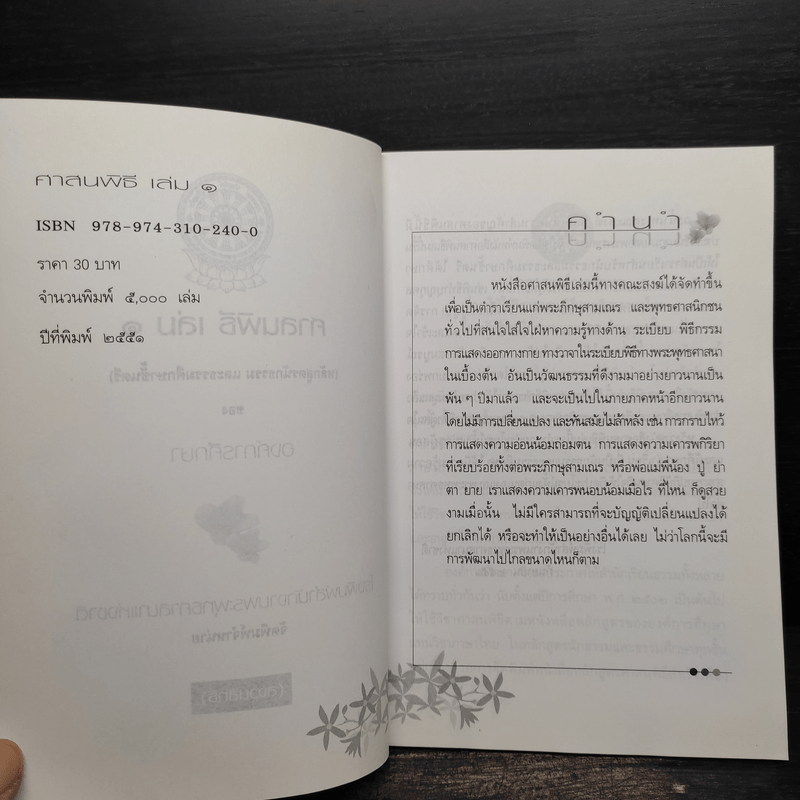 ศาสนพิธี เล่ม ๑
ISBN 978-974-310-240-0
ราคา 30 บาท
จำนวนพิมพ์ ๕,๐๐๐ เล่ม
ปีที่พิมพ์ ๒๕๕๑
คำนำ
หนังสือศาสนพิธีเล่มนี้ทางคณะสงฆ์ได้จัดทำขึ้น
เพื่อเป็นตำราเรียนแก่พระภิกษุสามเณร และพุทธศาสนิกชน
ทั่วไปที่สนใจใส่ใจใฝ่หาความรู้ทางด้าน ระเบียบ พิธีกรรม
การแสดงออกทางกาย ทางวาจาในระเบียบพิธีทางพระพุทธศาสนา
ในเบื้องต้น อันเป็นวัฒนธรรมที่ดีงามมาอย่างยาวนานเป็น
พัน ๆ ปีมาแล้ว และจะเป็นไปในภายภาคหน้าอีกยาวนาน
โดยไม่มีการเปลี่ยนแปลง และทันสมัยไม่ล้าหลัง เช่น การกราบไหว้
การแสดงความอ่อนน้อมถ่อมตน การแสดงความเคารพกิริยา
ที่เรียบร้อยทั้งต่อพระภิกษุสามเณร หรือพ่อแม่พี่น้อง ปู่ ย่า
ตา ยาย เราแสดงความเคารพนอบน้อมเมื่อไร ที่ไหน ก็ดูสวย
งามเมื่อนั้น ไม่มีใครสามารถที่จะบัญญัติเปลี่ยนแปลงได้
ยกเลิกได้ หรือจะทำให้เป็นอย่างอื่นได้เลย ไม่ว่าโลกนี้จะมี
การพัฒนาไปไกลขนาดไหนก็ตาม